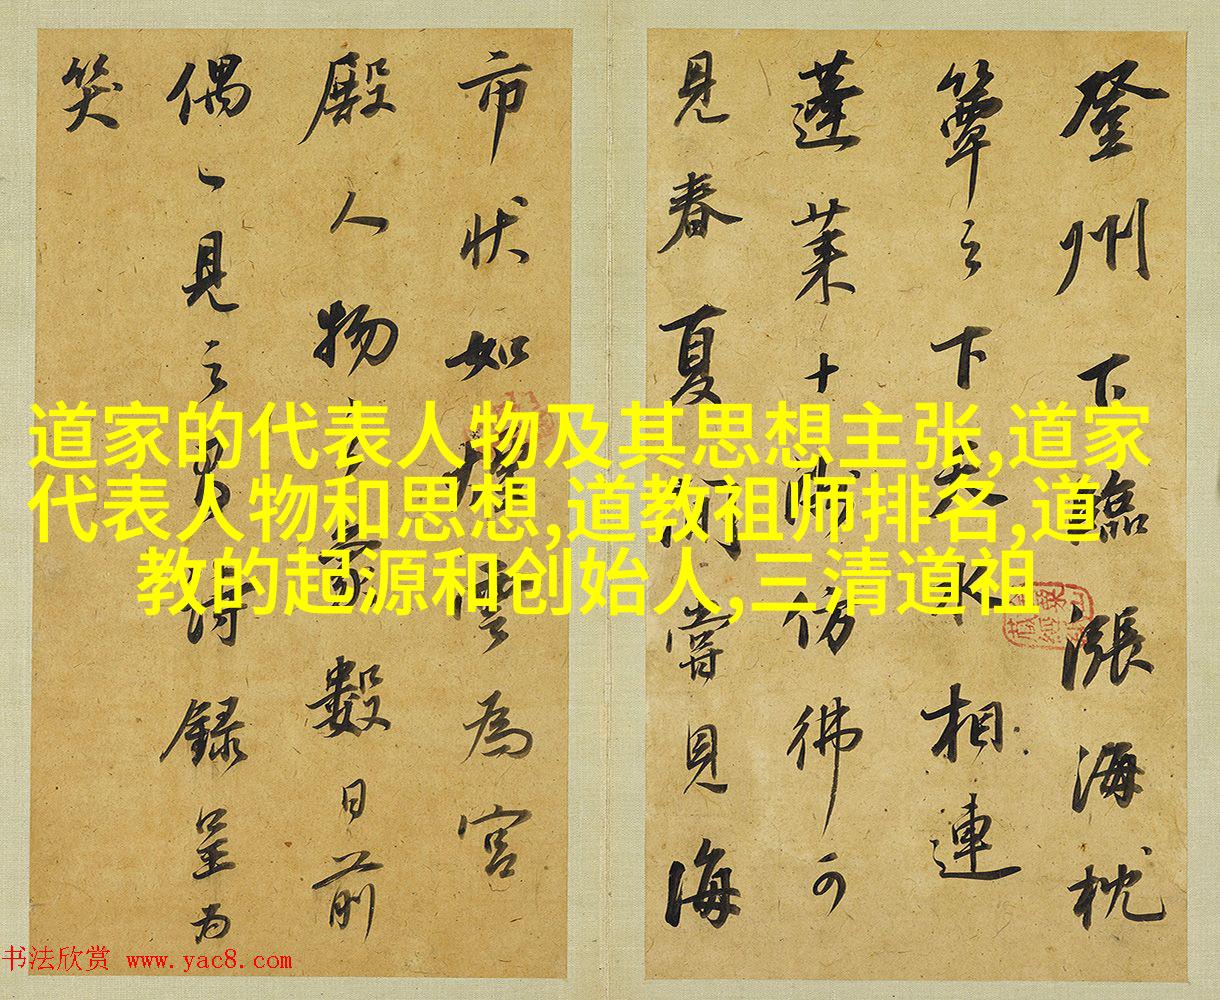 登州下臨漲海枕
簟之下天水相連
蓬萊十洲仿彿可
見春夏間嘗見海
市狀如樓壁為宮
殿人物之象數日前
偶一見之具詩錄呈為
笑
道家的代表人物及其思想主张,道家
代表人物和思想,道教祖师排名,道
教的起源和创始人,三清道祖
书法欣赏 www.yac8.com